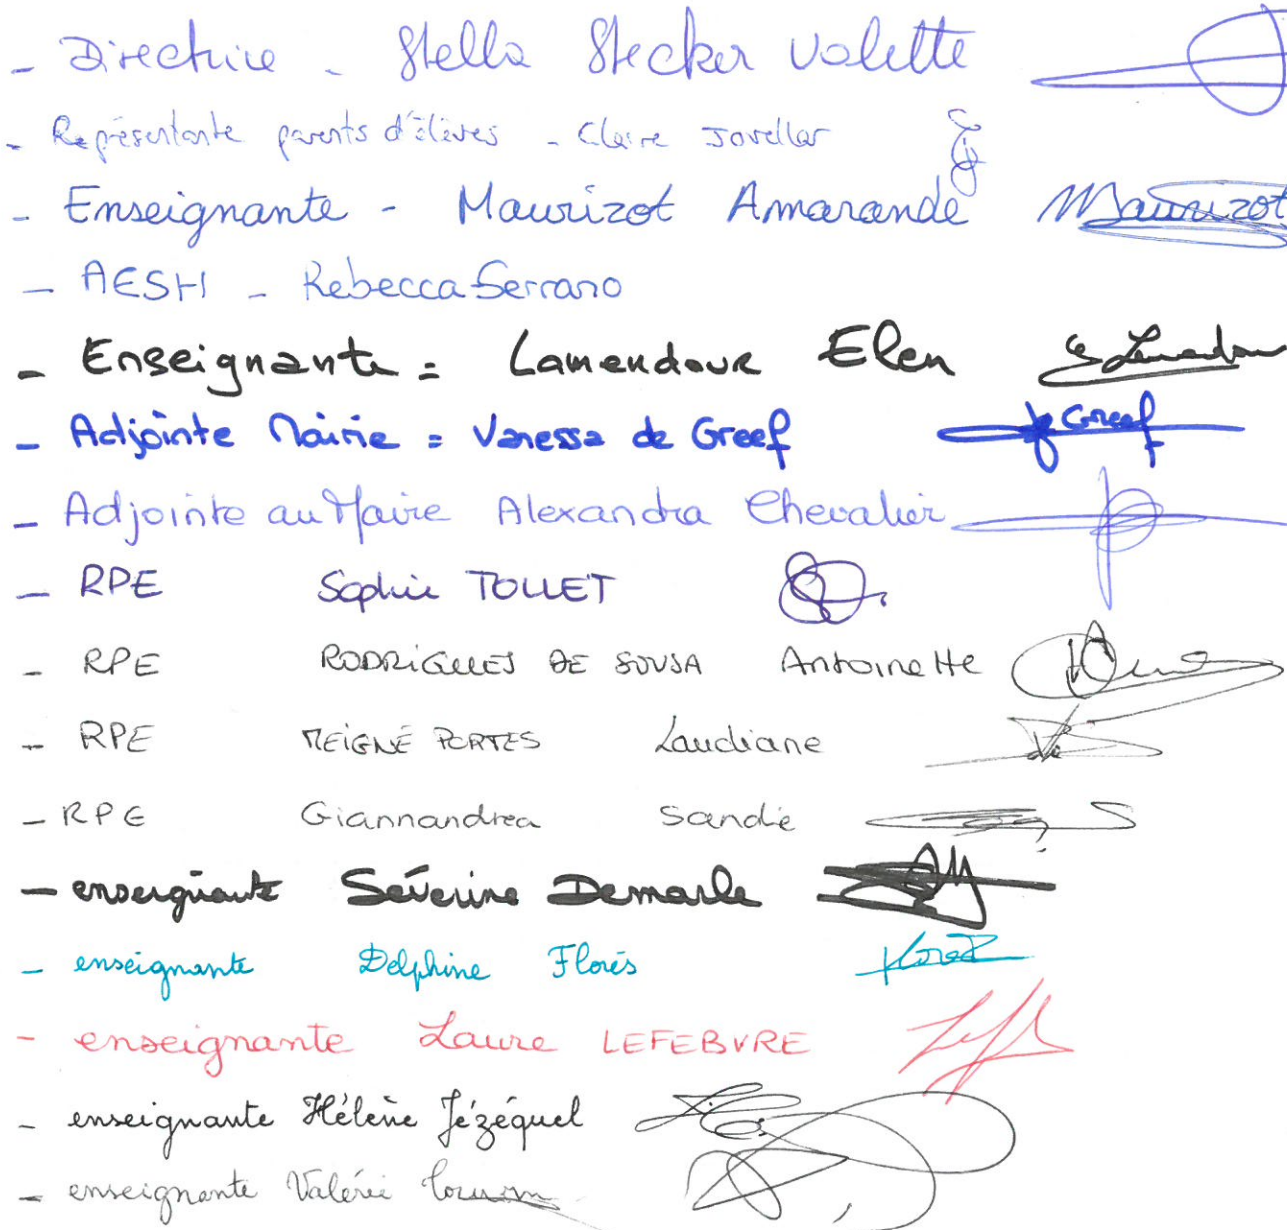 - Directrice - Stella Stecker Valette
- Représentante parents d'élèves - Claire Jovellar
- Enseignante - Maurizot Amarande Maurizot
- AESH - Rebecca Serrano
- Enseignante = Lamendour Elen
- Adjointe Mairie = Vanessa de Greef de Greef
- Adjointe au Maire Alexandra Chevalier
- RPE Sophie TOLLET
- RPE RODRIGUES DE SOUSA Antoinette
- RPE MEIGNÉ PORTES Laudiane
- RPE Giannandrea Sandie
- enseignante Séverine Demarle
- enseignante Delphine Florès
- enseignante Laure LEFEBVRE
- enseignante Hélène Jézéquel
- enseignante Valérie